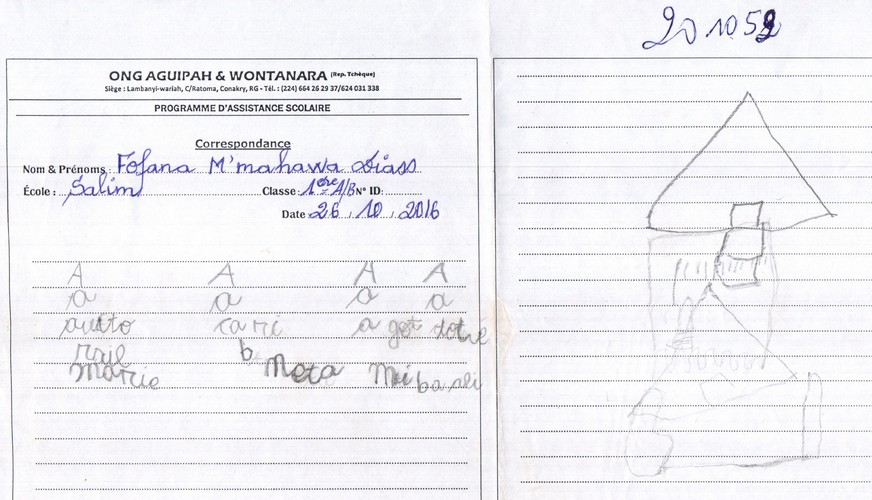 201052
ONG AGUIPAH & WONTANARA (Rep. Tchèque)
Siège : Lambanyi-wariah, C/Ratoma, Conakry, RG - Tél. : (224) 664 26 29 37/624 031 338
PROGRAMME D'ASSISTANCE SCOLAIRE
Correspondance
Nom & Prénoms : Fofana M'mahawa
École : Salim Classe : 1ère A/B N° ID:
Date 26 / 10 / 2016
A A A A
a a a a
a
marie Mota ba ali